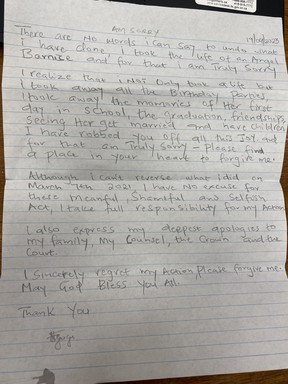 AM SORRY
There are No words i can say to undo what
i have done, I took the life of an Angel
and for that i am Truly Sorry
I realize that i Not Only took a life but
I took away all the Birthday Parties
I took away the momories of Her first
day in School, the Graduation, friendships
Seeing Her get married and have Children
I have robbed You off all this Joy and
for that am Truly Sorry - Please find
a place in your heart to forgive me.
Although I can't reverse what i did on
March 7th 2021, I have No excuse for
these meanful, Shameful and Selfish
Act, I take full responsibility for my Action
I also express my deepest apologies to
my family, My Counsel, the Crown and the
Court.
I Sincerely regret my Action, Please forgive me.
May God Bless You All.
Thank You